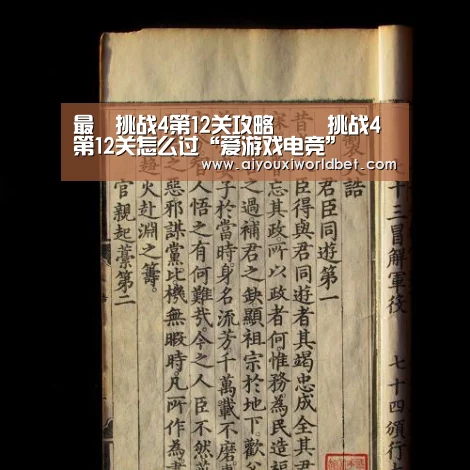 最 挑战4第12关攻略 挑战4
第12关怎么过“爱游戏电竞”
www.aiyouxiworldbet.com
十三冒解軍役 七十四頒行
製大誥
君臣同遊第一
昔
臣得與君同遊者其竭忠成全其君
忘其政所以政者何惟務為民造福
之過補君之缺顯祖宗於地下歡父
子於當時身名流芳千萬載不磨專
人悟之有何難哉今之人臣不然蔽
之惡邪謀黨比機無暇時凡所作為
火赴淵之籌
官親起藁第二